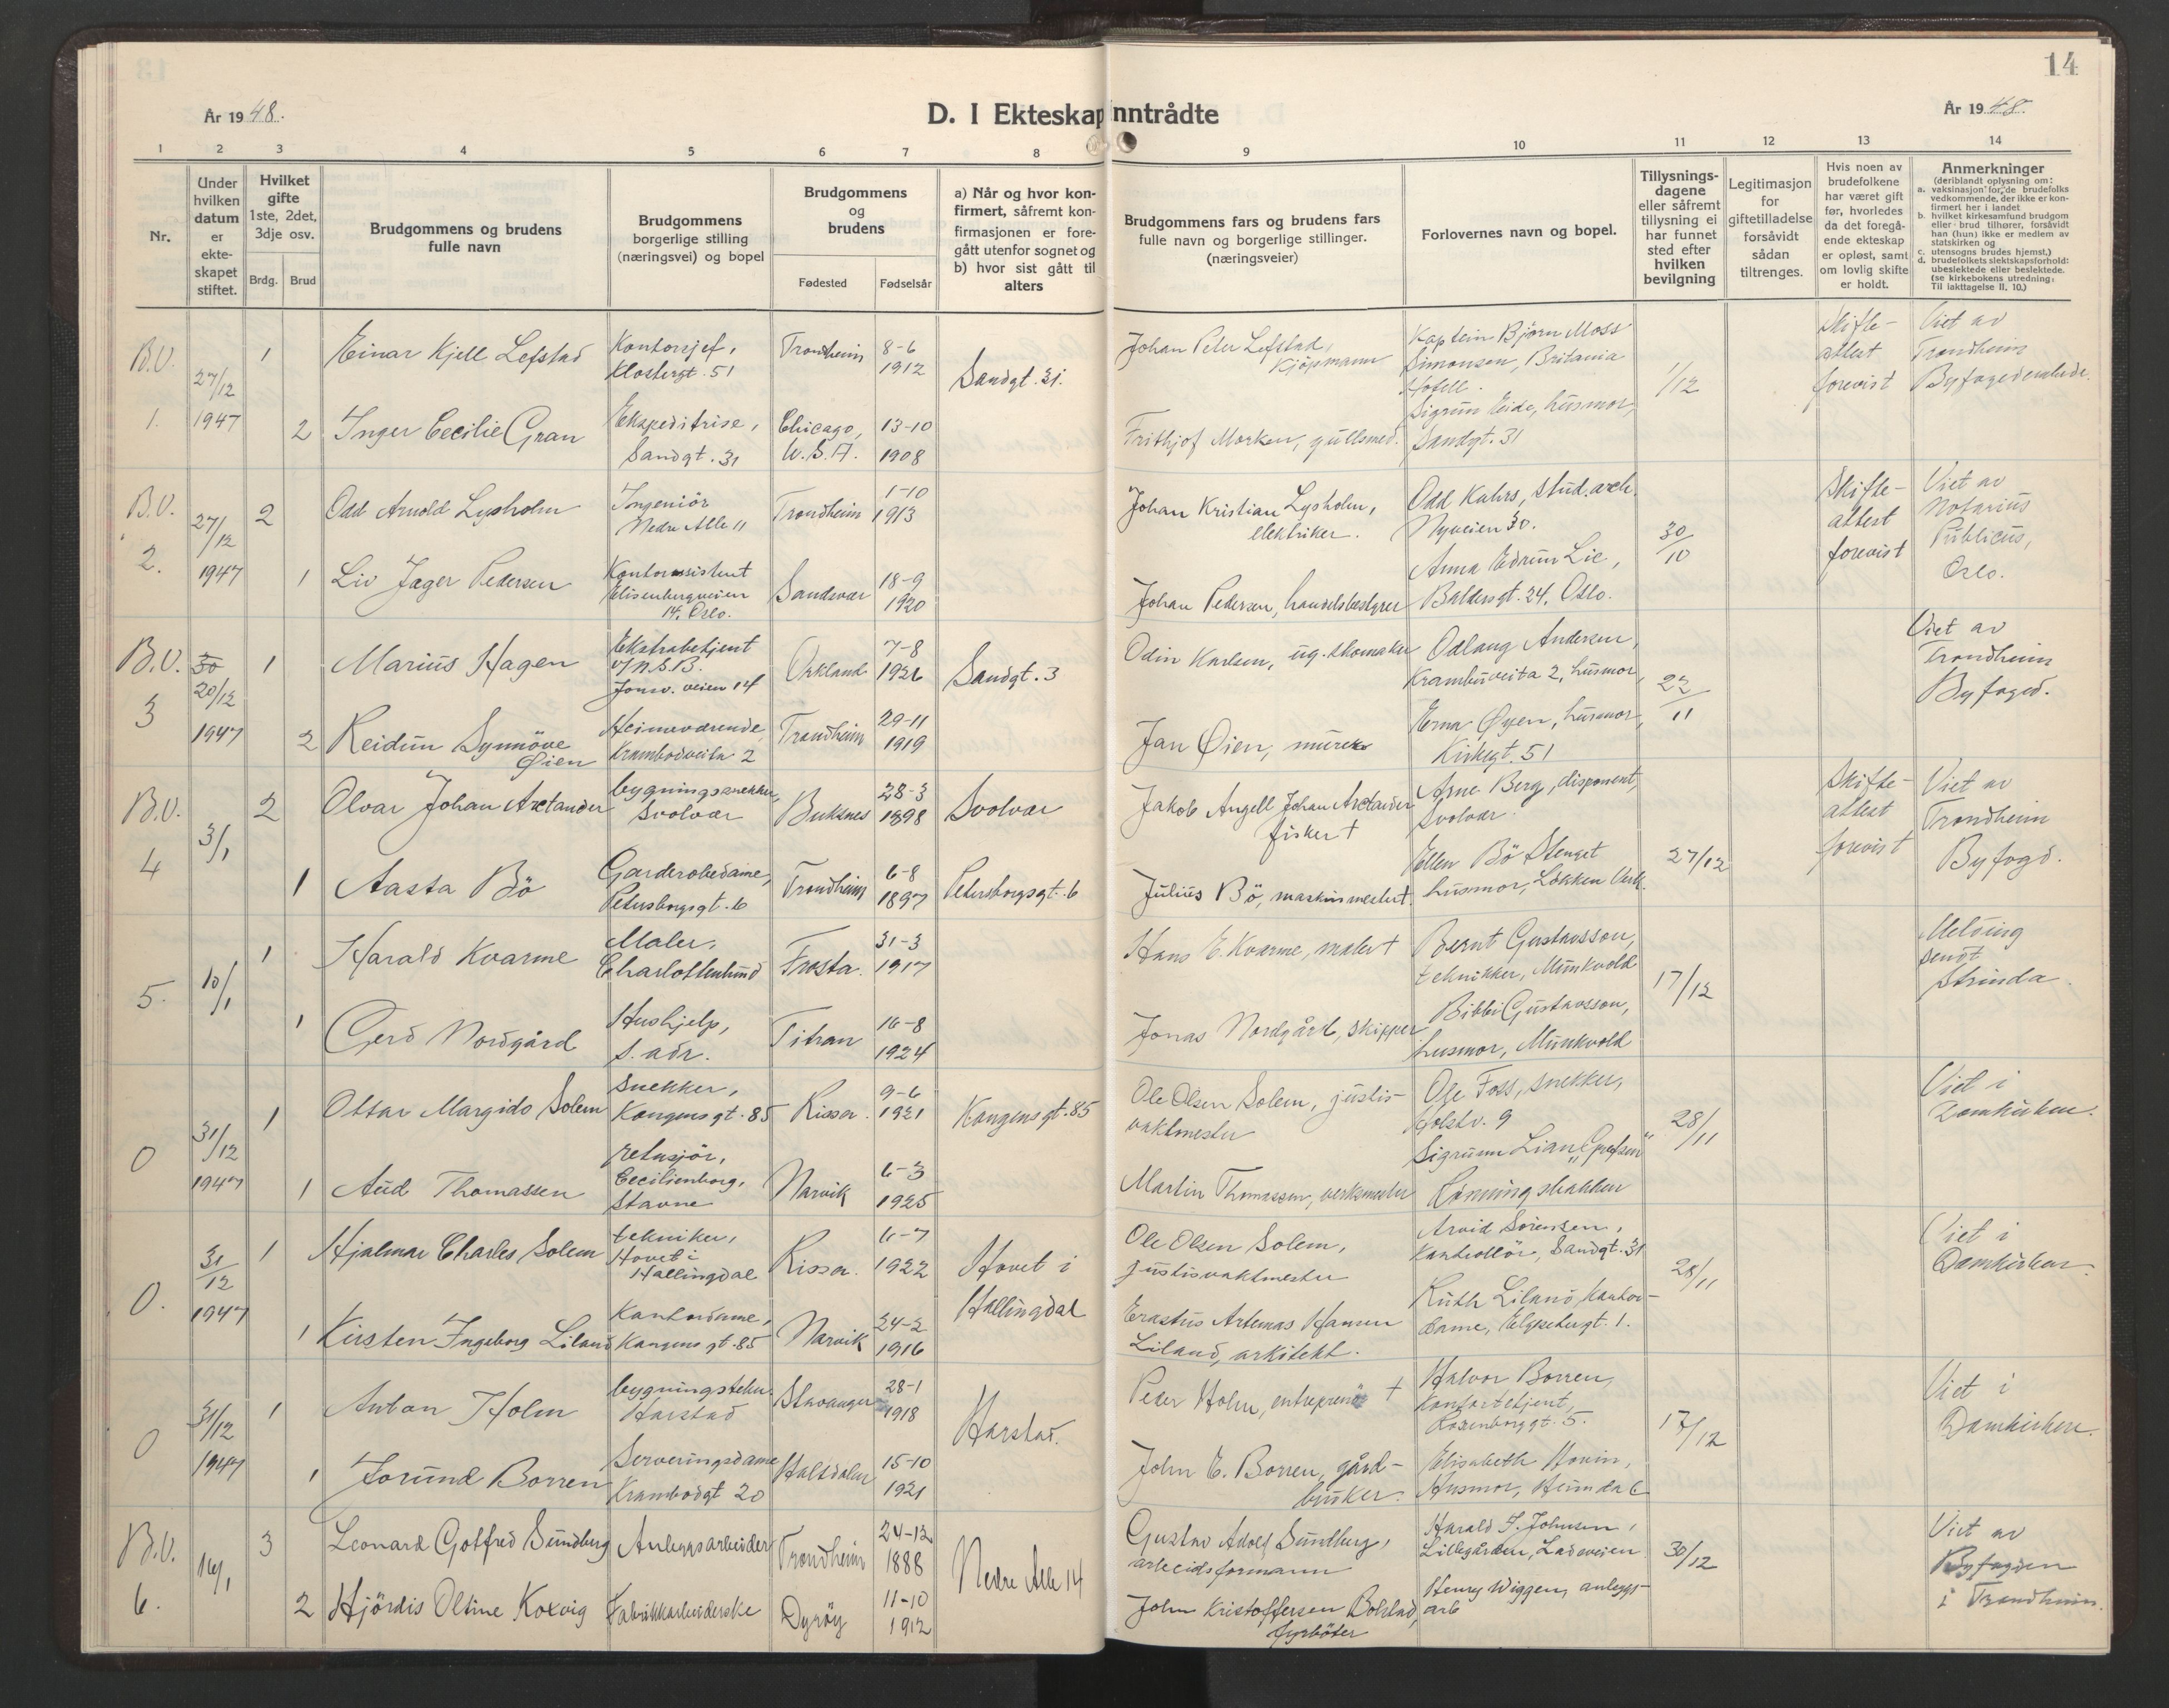 14
År 1948.
D. I Ekteskap inntrådte
År 1948.
1 2 3 4 5 6 7 8 9 10 11 12 13 14
Nr.
Under hvilken datum er ekte-skapet stiftet.
Hvilket gifte 1ste, 2det, 3dje osv.
Brdg. Brud
Brudgommens og brudens fulle navn
Brudgommens borgerlige stilling (næringsvei) og bopel
Brudgommens og brudens
Fødested Fødselsår
a) Når og hvor kon-firmert, såfremt kon-firmasjonen er fore-gått utenfor sognet og b) hvor sist gått til alters
Brudgommens fars og brudens fars fulle navn og borgerlige stillinger. (næringsveier)
Forlovernes navn og bopel.
Tillysnings-dagene eller såfremt tillysning ei har funnet sted efter hvilken bevilgning
Legitimasjon for giftetilladelse forsåvidt sådan tiltrenges.
Hvis noen av brudefolkene har været gift før, hvorledes da det foregå-ende ekteskap er opløst, samt om lovlig skifte er holdt.
Anmerkninger
(deriblandt oplysning om:
a. vaksinasjon for, de brudefolks vedkommende, der ikke er kon-firmert her i landet
b. hvilket kirkesamfund brudgom eller brud tilhører, forsåvidt han (hun) ikke er medlem av statskirken og
c. utensogns brudes hjemst.)
d. brudefolkets slektskapsforhold: ubeslektede eller beslektede. (se kirkebokens utredning: Til iakttagelse II, 10.)
B.V. 1. 27/12 1947
1 Einar Kjell Lefstad Kontorsjef, Klostergt. 51 Trondheim 8-6 1912 Sandgt. 31.
Johan Peter Lefstad, Kjöpmann Kaptein Bjørn Moss Simonsen, Britania Hotell. 1/12 Skifte-attest forevist Viet av Trondheim
2 Inger Cecilie Gran Ekspeditrise, Sandgt. 31 Chicago, U.S.A. 13-10 1908
Frithjof Morken, gullsmed. Sigrun Eide, husmor, Sandgt. 31
B.V. 2. 27/12 1947
2 Odd Arnold Lysholm Ingeniör Nedre Alle 11 Trondheim 1-10 1913
Johan Kristian Lysholm, elektriker. Odd Kahrs, stud. arch. Nyveien 30. 30/10 Skifte-attest forevist Viet av Notarius Publicus, Oslo.
1 Liv Jager Pedersen Kontorassistent Elisenbergveien 14, Oslo. Sandvær 18-9 1920
Johan Pedersen, handelsbestyrer Anna Edrun Lie, Baldersgt. 24, Oslo.
B.V. 3 30 20/12 1947
1 Marius Hagen Ekstrabetjent v/N.S.B. Jonsv. veien 14 Orkland 7-8 1926 Sandgt. 3
Odin Karlsen, ug. skomaker Odlaug Andersen, Krambuveita 2, husmor, 22/11 Viet av Trondheim Byfoged.
2 Reidun Synnöve Øien Heimeværende, Krambodveita 2 Trondheim 29-11 1919
Jan Øien, murer Erna Øyen, husmor, Kirkegt. 51
B.V. 4 3/1
2 Olvar Johan Arctander bygningssnekker, Svolvær Buksnes 28-3 1898 Svolvær
Jakob Angell Johan Arctander fisker + Arne Berg, disponent, Svolvær. 27/12 Skifte-attest forevist Viet av Trondheim Byfogd.
1 Aasta Bö Garderobedame, Petersborgsgt. 6 Trondheim 6-8 1897 Petersborgsgt. 6
Julius Bö, maskinmester +. Ellen Bö Stenget husmor, Lökken Verk.
5. 10/1
1 Harald Kvarme Maler, Charlottenlund Frosta. 31-3 1917
Hans E. Kvarme, maler + Bernt Gustavsson, tekniker, Munkvold 17/12 Melding sendt Strinda.
1 Gerd Nordgård Hushjelp, s. adr. Titran 16-8 1924
Jonas Nordgård, skipper Bibbi Gustavsson, husmor, Munkvold
0 31/12 1947
1 Ottar Margido Solem Snekker, Kongensgt. 85 Rissa. 9-6 1921 Kongensgt. 85
Ole Olsen Solem, justis-vaktmester Ole Foss, snekker, Holstv. 9 28/11 Viet i Domkirken.
1 Aud Thomassen retusjör, Cecilienborg, Stavne Narvik 6-3 1925
Martin Thomassen, verksmester Sigrunn Lian,
0. 31/12 1947
1 Hjalmar Charles Solem tekniker, Hovet i Hallingdal Rissa. 6-7 1922 Hovet i Hallingdal
Ole Olsen Solem, justisvaktmester Arvid Sörensen, Kontrollör, Sandgt. 31 28/11 Viet i Domkirken.
1 Kirsten Ingeborg Liland Kontordame, Kongensgt. 85 Narvik 24-2 1916
Erastus Artemas Hansen Liland, arkitekt. Ruth Liland, kontor-dame, Elgesetergt. 1.
0 31/12 1947
1 Anton Holm bygningstekn. Harstad Stavanger 28-1 1918 Harstad.
Peder Holm, entreprenör + Halvor Borren, Kontorbetjent, Rosenborggt. 5. 17/12 Viet i Domkirken.
1 Jorund Borren Serveringsdame Krambodgt 20 Haltdalen 15-10 1921
John E. Borren, gård-bruker. Elisabeth Hovin, Husmor, Heimdal
B.V. 6. 16/1
3 Leonard Gotfred Sundberg Anleggsarbeider Trondheim 24-12 1888 Nedre Alle 14
Gustav Adolf Sundberg, arbeidsformann Harald J. Johnsen, Lillegården, Ladeveien 30/12 Viet av Byfogden i Trondheim.
2 Hjördis Oltine Koxvig Fabrikkarbeiderske Dyröy 11-10 1912
John Kristoffersen Bolstad, fyrböter Henry Wiggen, anleggs-arb